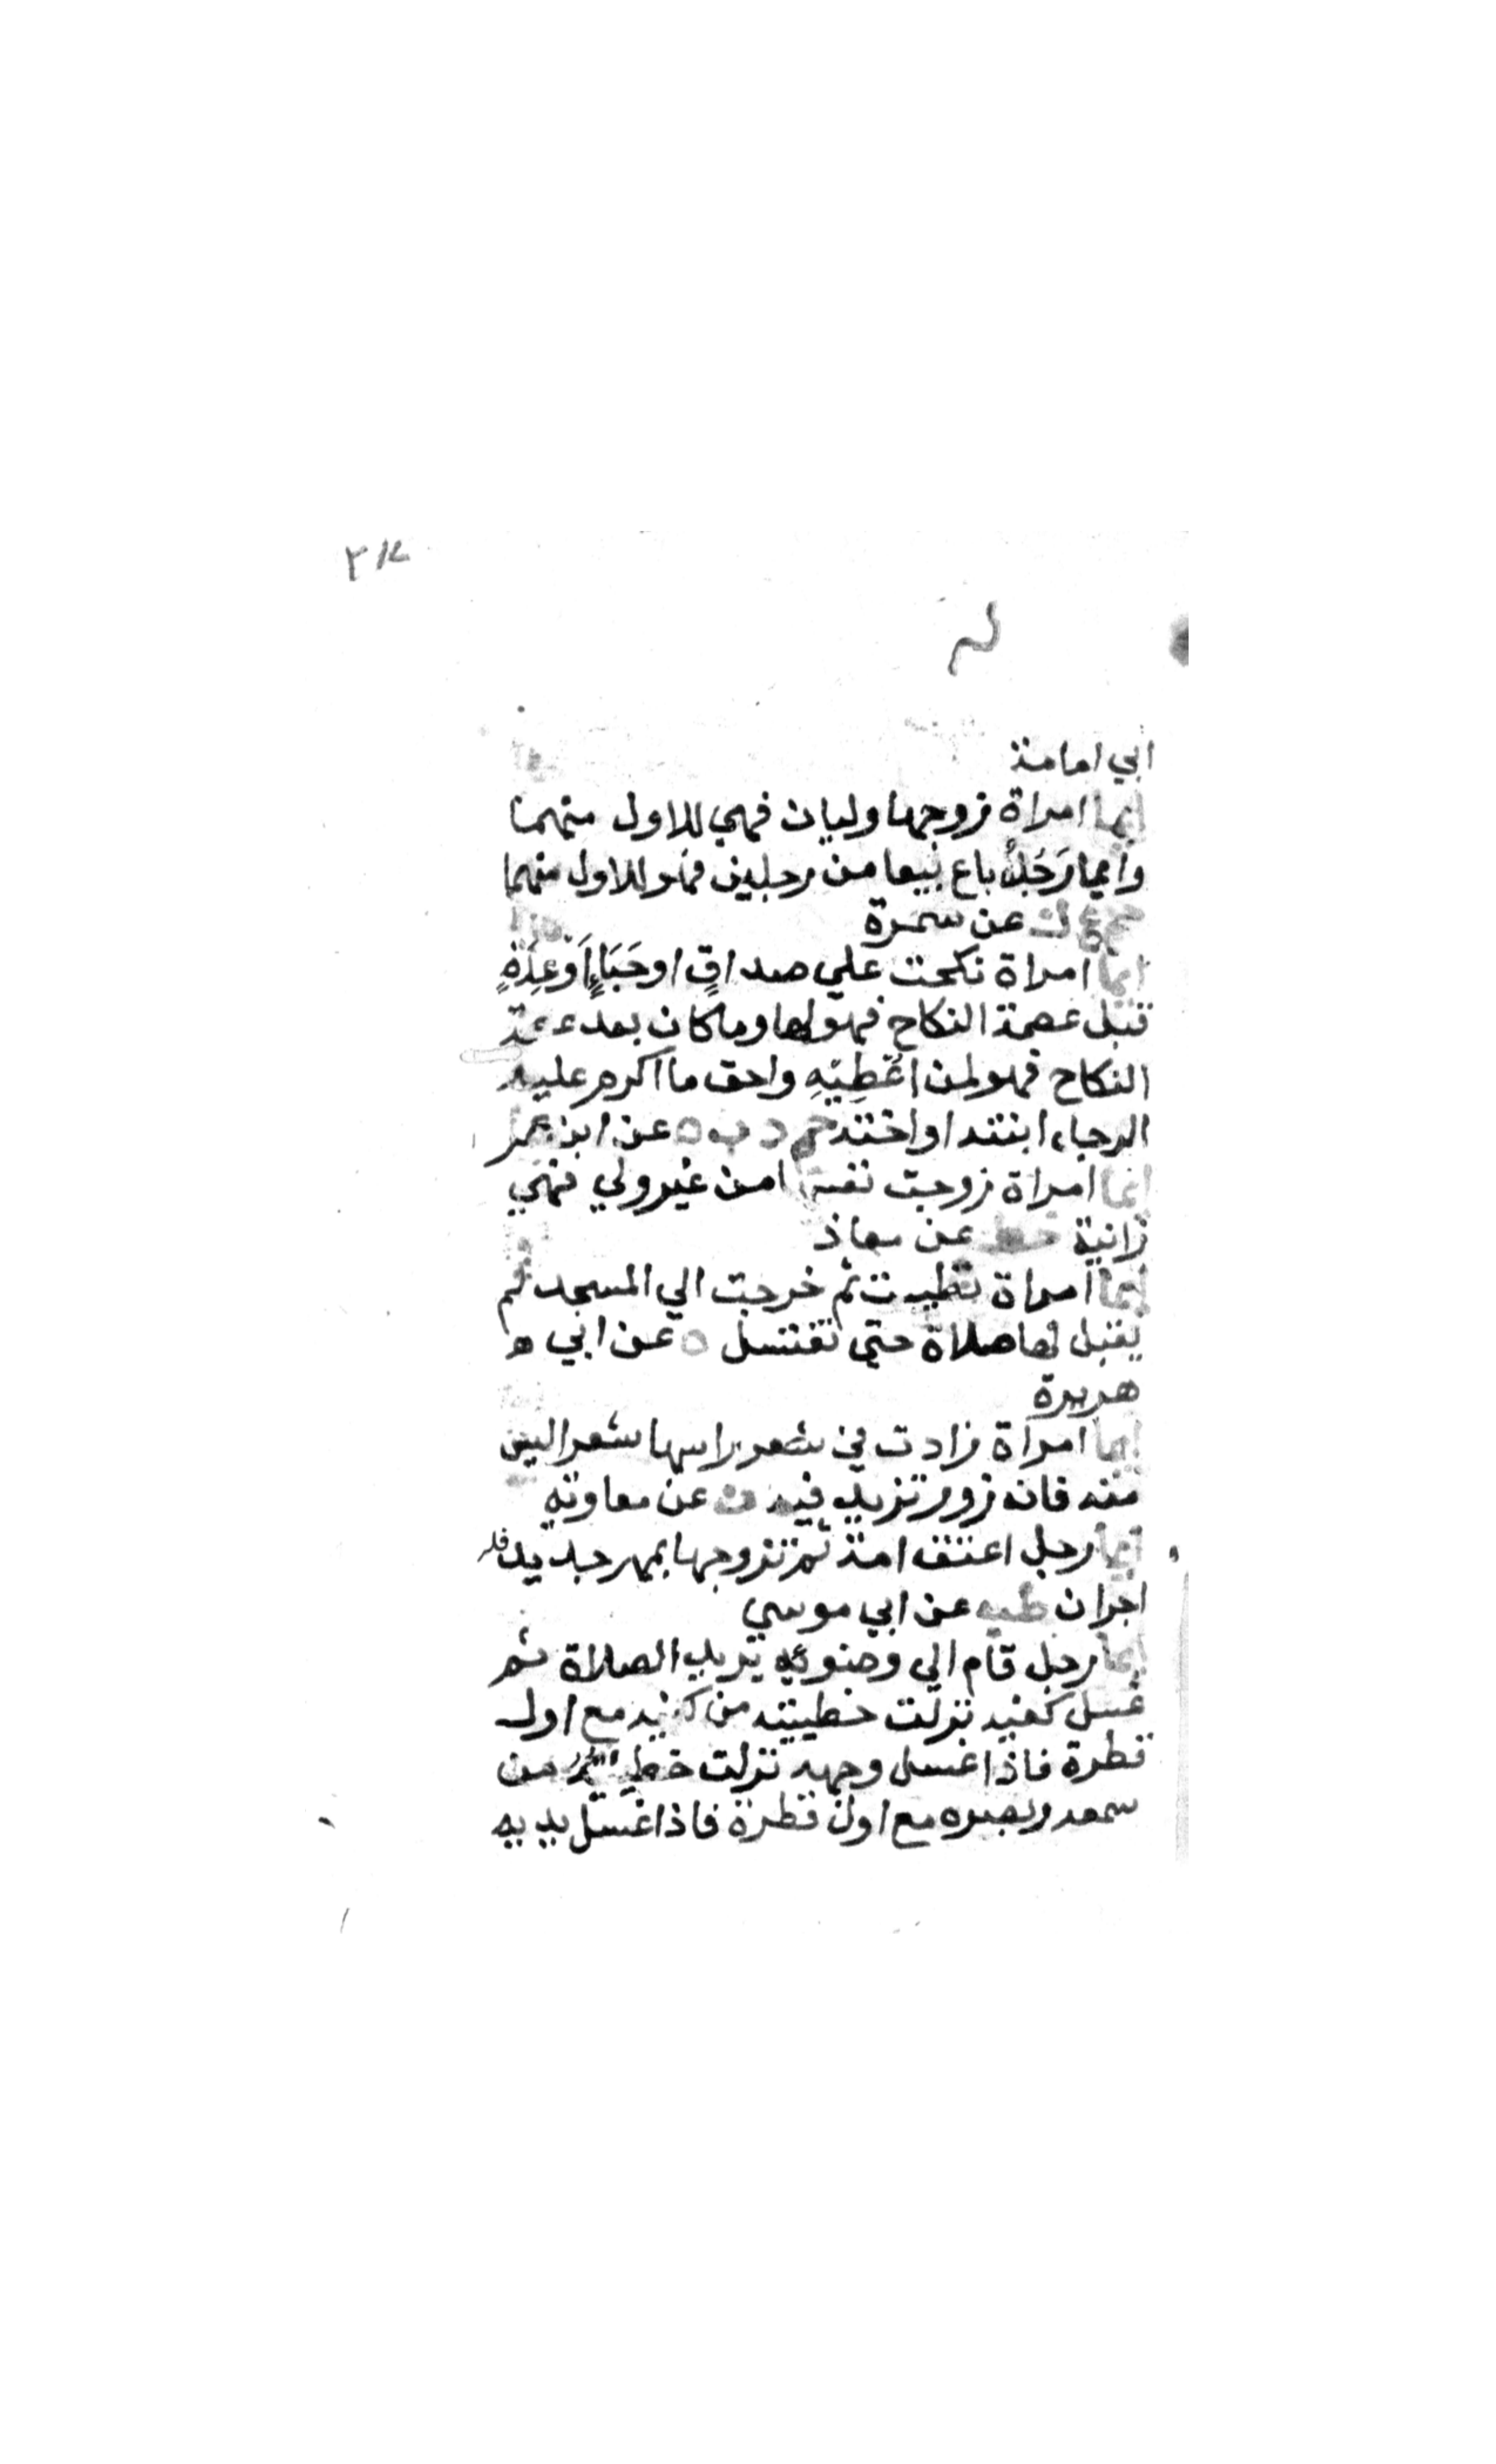 ابي امامة
ايما امراة زوجها وليان فهي للاول منهما
وايما رَجُلٌ باع بيعا من رجلين فهو للاول منهما
حم ع ك عن سمرة
ايما امراة نكحت علي صداقٍ او حَبَاءٍ اَوْ عِدَةٍ
قبل عصمة النكاح فهو لها وما كان بعد عصمة
النكاح فهو لمن اُعْطِيَهِ واحق ما اكرم عليه
الرجل ابنته او اخته حم د ن ه عن ابن عمر
ايما امراة زوجت نفسها من غير ولي فهي
زانية خط عن معاذ
ايما امراة تطيبت ثم خرجت الي المسجد لم
يقبل لها صلاة حتي تغتسل ه عن ابي ه
هريرة
ايما امراة زادت في شعر راسها شعرا ليس
منه فانه زور تزيد فيه ن عن معاوية
ايما رجل اعتق امة ثم تزوجها بمهر جديد فله
اجران طب عن ابي موسي
ايما رجل قام الي وضوئه يريد الصلاة ثم
غسل كفيه نزلت خطيئته من كفيه مع اول
قطرة فاذا غسل وجهه نزلت خطيئته من
سمعه وبصره مع اول قطرة فاذا غسل يديه